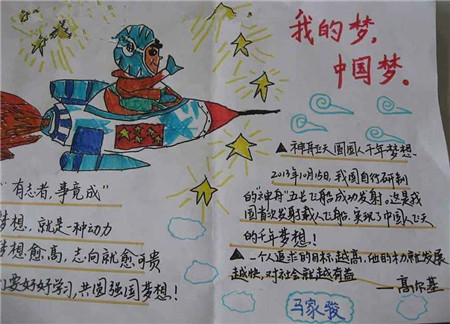 我的梦,
中国梦。
"有志者,事竟成"
梦想,就是一种动力
梦想愈高,志向就愈可贵
们要好好学习,共圆强国梦想!
▲神舟飞天圆国人千年梦想
2013年10月15日,我国自行研制
的"神舟"五号飞船成功发射。这是我
国首次发射载人飞船,实现了中国人飞天
的千年梦想!
▲一个人追求的目标越高,他的才力就发展
越快,对社会就越有益
—高尔基
马家骏